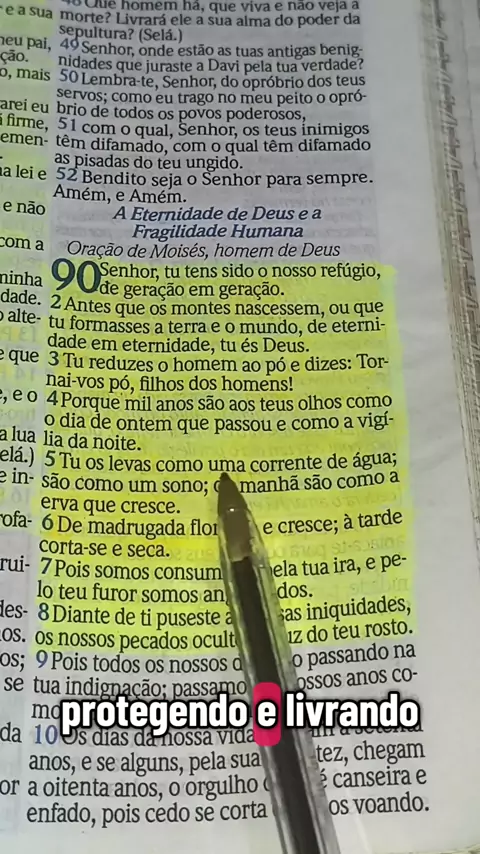 48 Que homem há, que viva e não veja a
e a sua morte? Livrará ele a sua alma do poder da
sepultura? (Selá.)
meu pai, 49 Senhor, onde estão as tuas antigas benig-
ção. nidades que juraste a Davi pela tua verdade?
o, mais 50 Lembra-te, Senhor, do opróbrio dos teus
servos; como eu trago no meu peito o opró-
arei eu brio de todos os povos poderosos,
firme, 51 com o qual, Senhor, os teus inimigos
emen- têm difamado, com o qual têm difamado
as pisadas do teu ungido.
a lei e 52 Bendito seja o Senhor para sempre.
Amém, e Amém.
e não A Eternidade de Deus e a
Fragilidade Humana
com a Oração de Moisés, homem de Deus
minha 90 Senhor, tu tens sido o nosso refúgio,
de geração em geração.
dade. 2 Antes que os montes nascessem, ou que
alte- tu formasses a terra e o mundo, de eterni-
dade em eternidade, tu és Deus.
e que 3 Tu reduzes o homem ao pó e dizes: Tor-
nai-vos pó, filhos dos homens!
, e o 4 Porque mil anos são aos teus olhos como
o dia de ontem que passou e como a vigí-
a lua lia da noite.
elá.) 5 Tu os levas como uma corrente de água;
e in- são como um sono; manhã são como a
erva que cresce.
rofa- 6 De madrugada flor e cresce; à tarde
corta-se e seca.
rui- 7 Pois somos consum ela tua ira, e pe-
lo teu furor somos an dos.
des- 8 Diante de ti puseste a sas iniquidades,
os. os nossos pecados ocult uz do teu rosto.
os; 9 Pois todos os nossos d o passando na
se tua indignação; passamo ossos anos co-
mo
protegendo e livrando
da 10 Os dias da nossa vida
anos, e se alguns, pela sua tez, chegam
or a oitenta anos, o orgulho é canseira e
enfado, pois cedo se corta os voando.